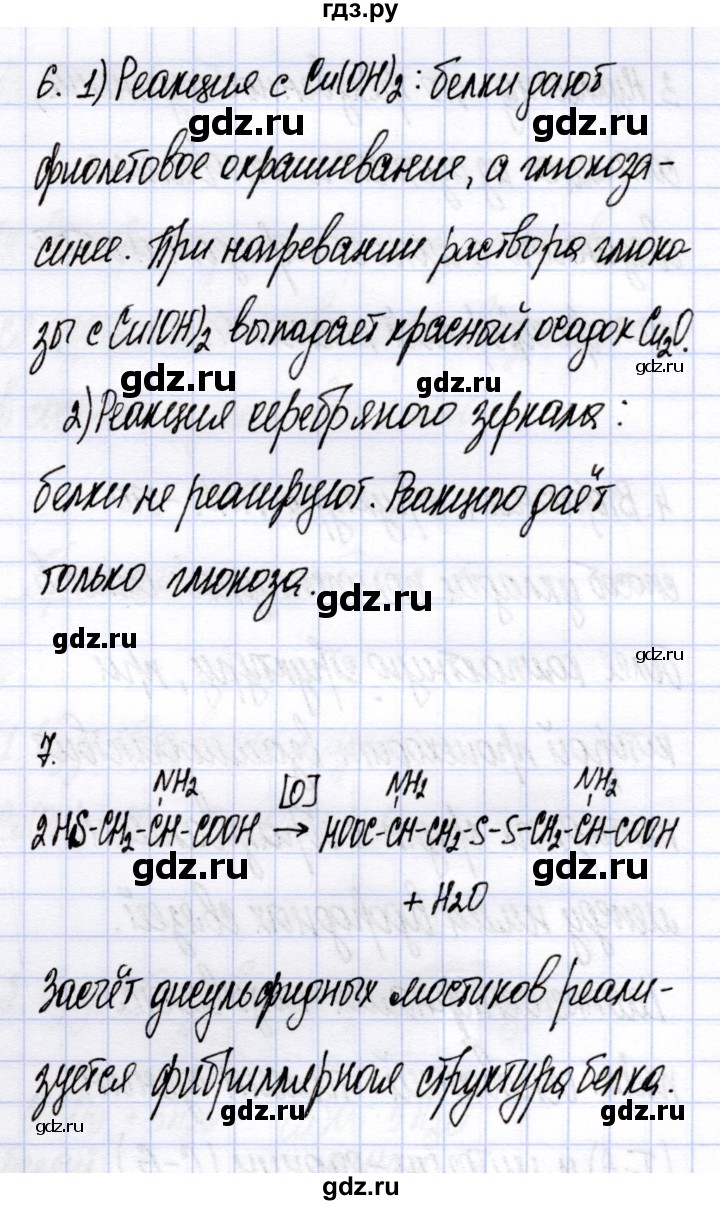 гдз.ру
6. 1) Реакция с Cu(OH)₂: белки дают
gdz.ru gdz.ru
фиолетовое окрашивание, а глюкоза-
синее. При нагревании раствора глюко-
зы с Cu(OH)₂ выпадает красный осадок Cu₂O.
gdz.ru gdz.ru gdz.ru
2) Реакция серебряного зеркала:
белки не реагируют. Реакцию даёт
только глюкоза.
gdz.ru
gdz.ru gdz.ru
7.
NH₂ [O] NH₂ NH₂
2HS-CH₂-CH-COOH → HOOC-CH-CH₂-S-S-CH₂-CH-COOH
gdz.ru gdz.ru gdz.ru
+ H₂O
Засчёт дисульфидных мостиков реали-
зуется фибриллярная структура белка.
gdz.ru gdz.ru gdz.ru
gdz.ru